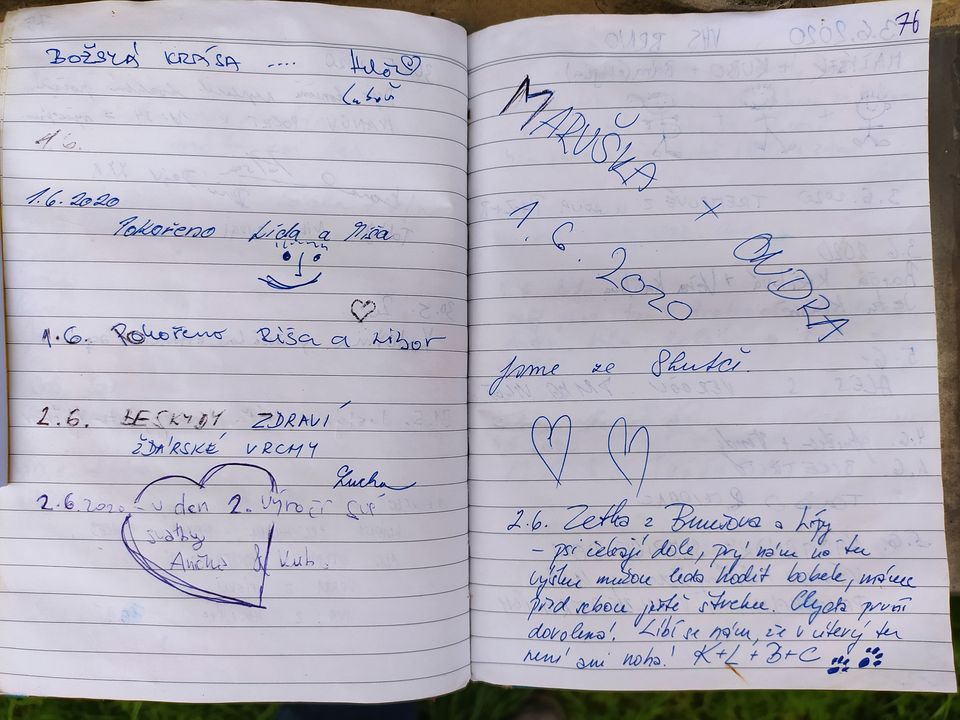 BOŽSKÁ KRÁSA ....
Luboš
1.6.
1.6.2020
Pokořeno Lída a Míša
1.6. Pokořeno Ríša a Libor
2.6. BESKYDY ZDRAVÍ
ŽĎÁRSKÉ VRCHY
Lucka
2.6.2020 - v den 2. výročí své
svatby
Anička & Kub.
76
MARUŠKA
X
ONDRA
1.6.2020
Jsme ze Skutče.
2.6. Zetka z a Lípy
- psi čekají dole, prý nám na tu
výšku můžou leda hodit bobek, máme
před sebou ještě štreku. první
dovolená! Líbí se nám, že v úterý tu
není ani noha! K+L+B+C